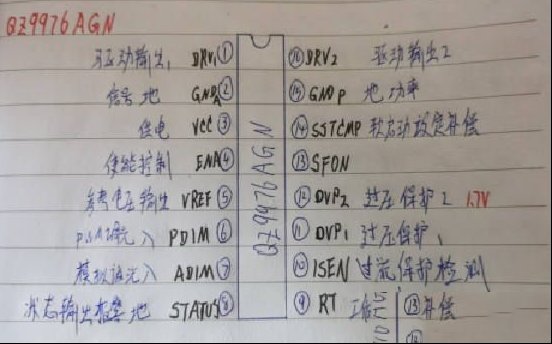 OZ9976AGN
驱动输出1 DRV1 ① ⑯ DRV2 驱动输出2
信号地 GNDA ② ⑮ GNDP 地功率
供电 VCC ③ ⑭ SSTCMP 软启动设定补偿
使能控制 ENA ④ ⑬ SFON
参考电压输出 VREF ⑤ ⑫ OVP2 过压保护2 1.7V
PWM调光入 PDIM ⑥ ⑪ OVP1 过压保护1
模拟调光入 ADIM ⑦ ⑩ ISEN 过流保护检测
状态输出 地 STATUS ⑧ ⑨ RT 工作 ⑬ 补偿
OZ9976AGN